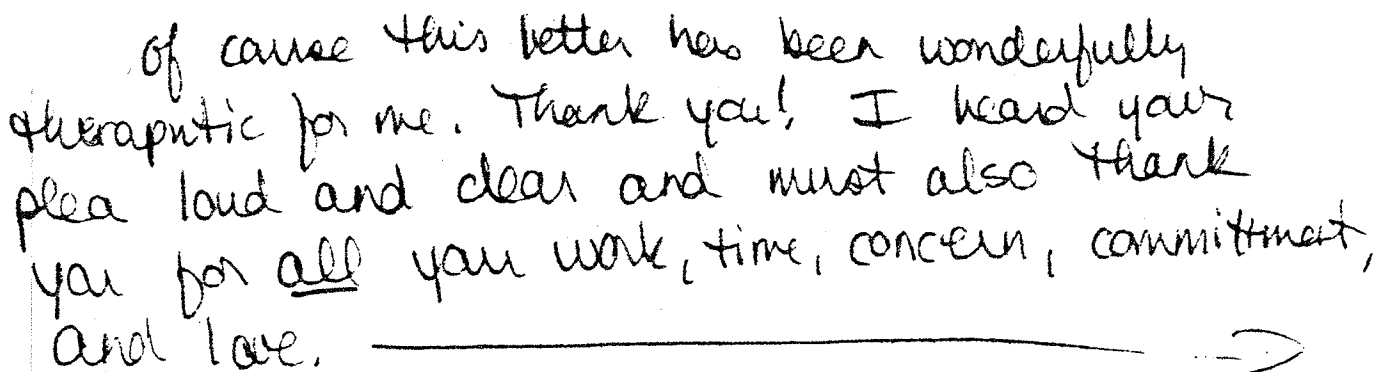 of cause this letter has been wonderfully
theraputic for me. Thank you! I heard your
plea loud and clear and must also thank
you for all your work, time, concern, committment,
and love.